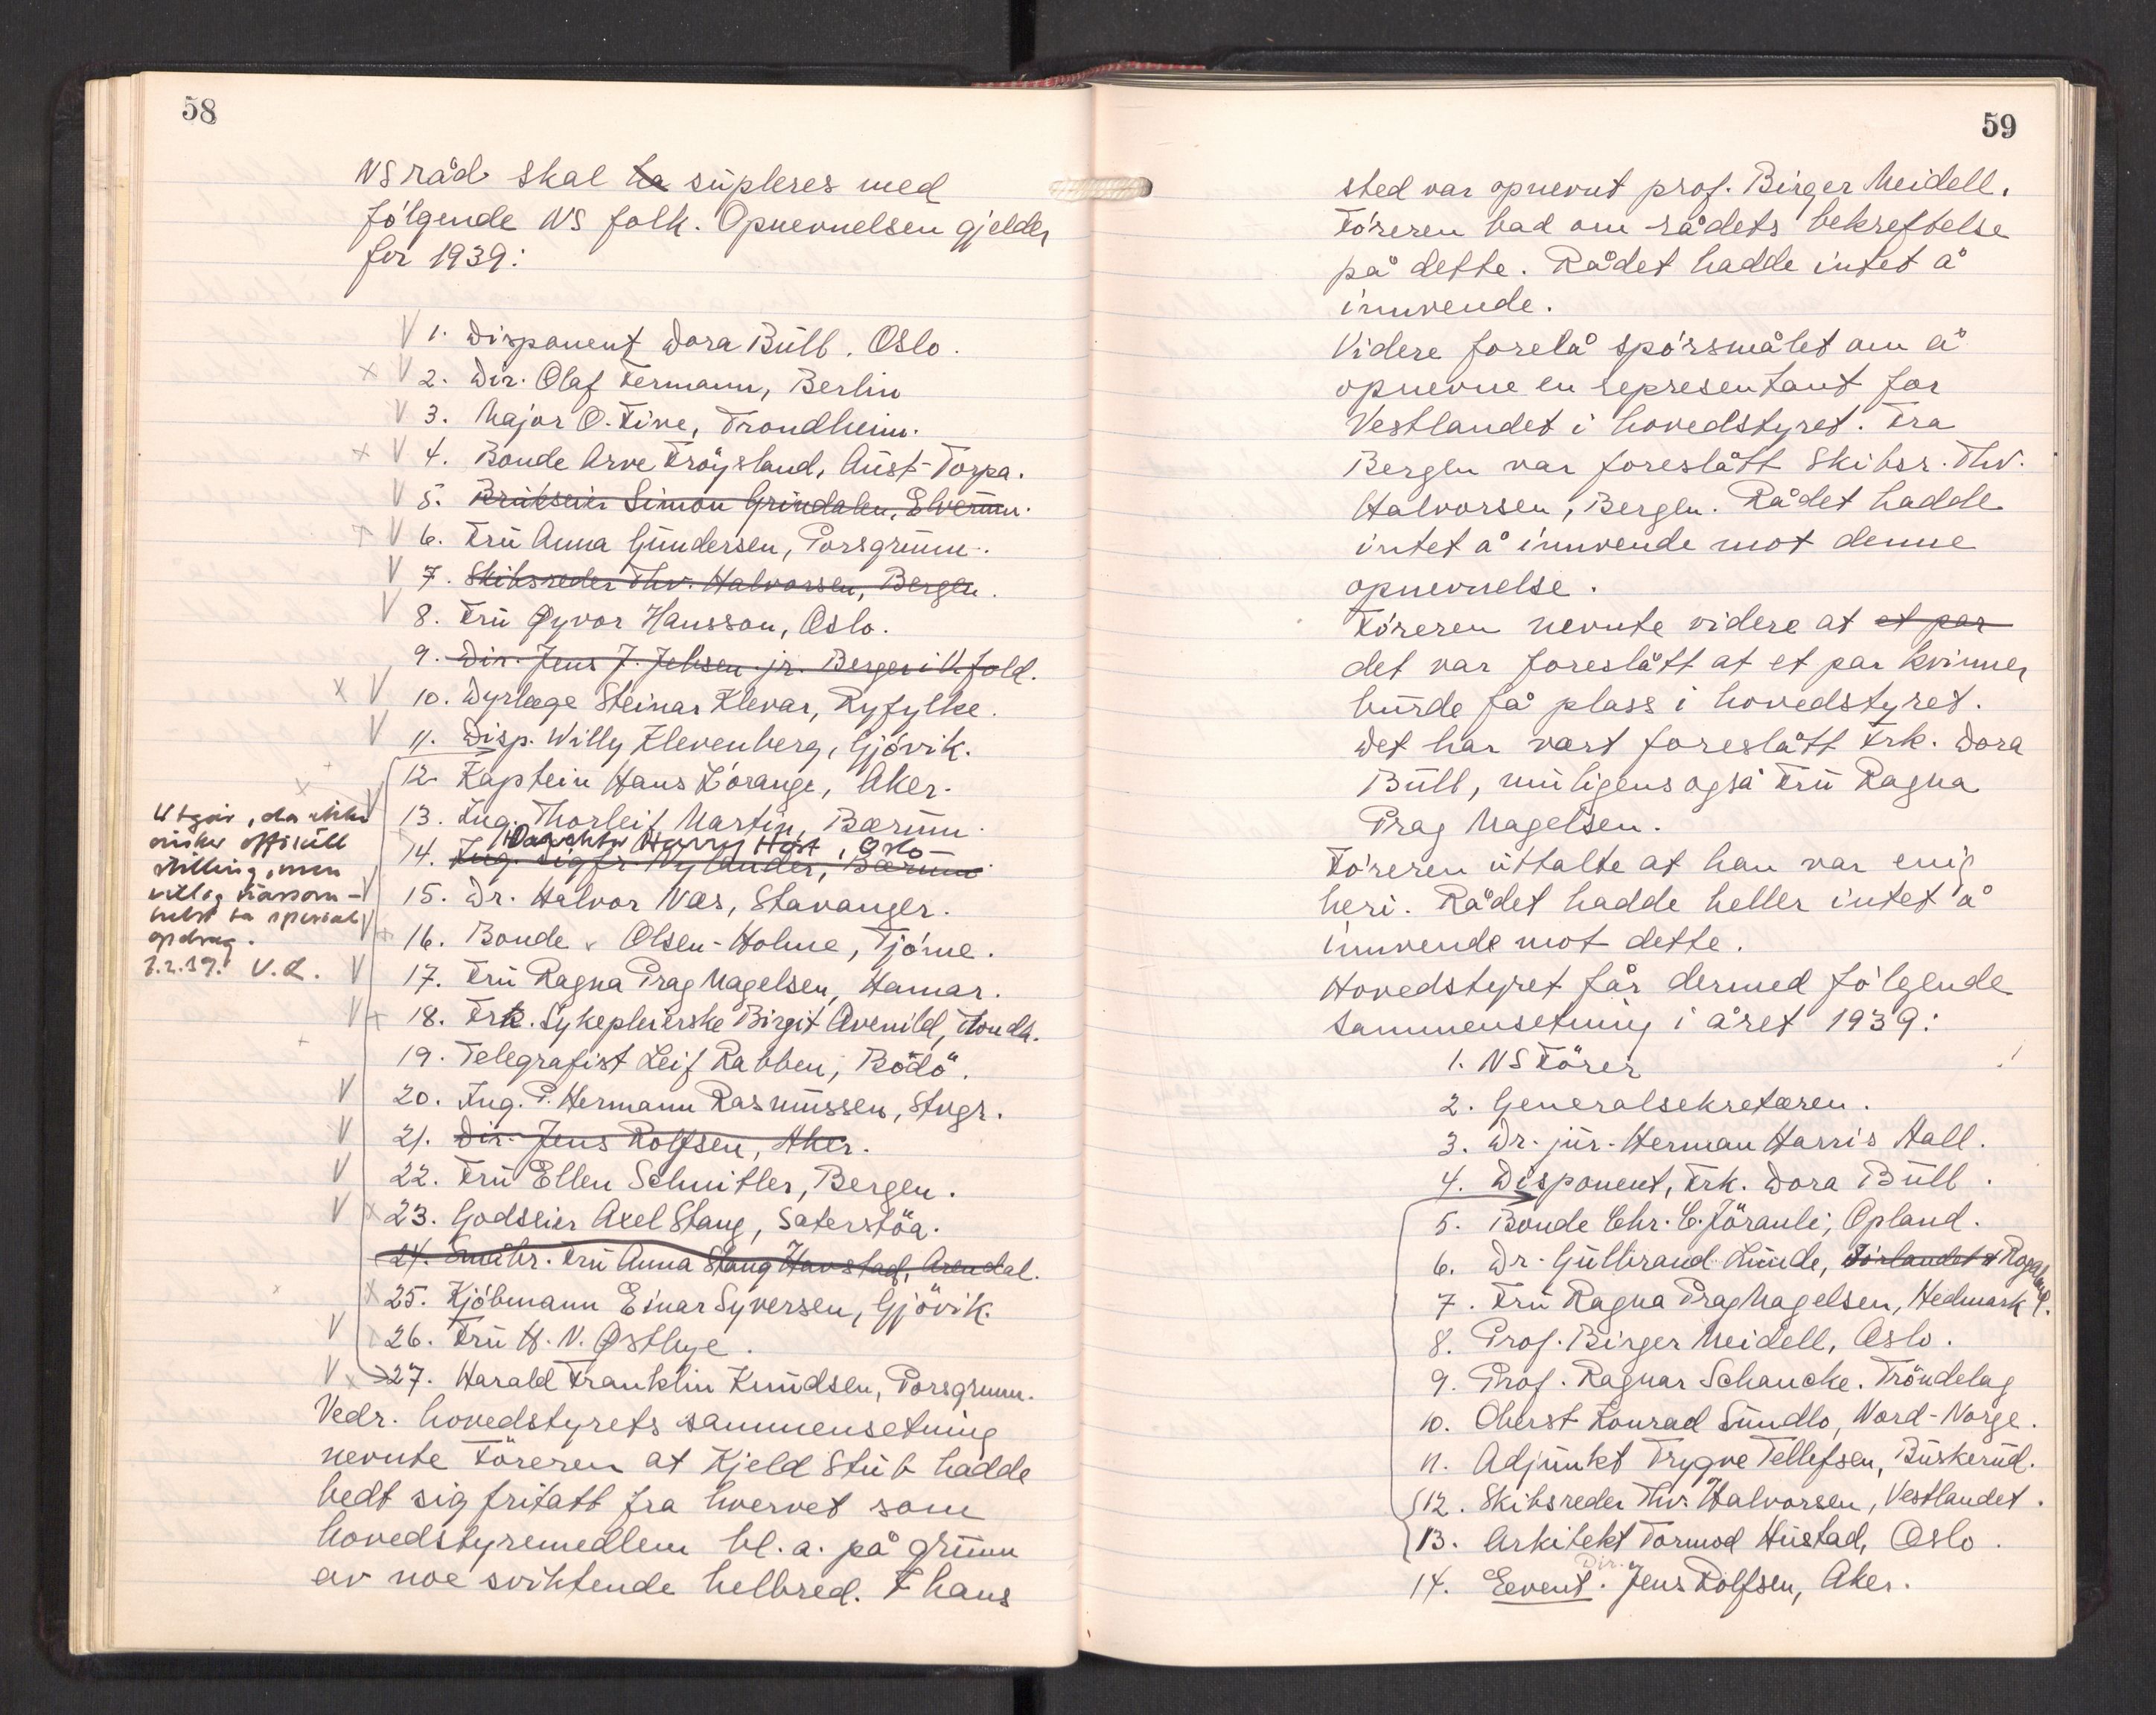 58
NS råd skal ha supleres med
følgende NS folk. Opnevnelsen gjelder
for 1939:
V 1. Disponent Dora Bull. Oslo.
x V 2. Dir. Olaf Fermann, Berlin
V 3. Major O. Five, Trondheim.
x V 4. Bonde Arve Frøysland, Aust-Torpa.
V 5. Brukseier Simon Grindalen, Elverum.
x V 6. Fru Anna Gundersen, Porsgrunn.
V 7. Skibsreder Thv. Halvorsen, Bergen.
V 8. Fru Øyvor Hansson, Oslo.
9. Dir. Jens J. Jebsen jr. Berger i Vfold.
x V 10. Dyrlæge Steinar Klevar, Ryfylke.
V 11. Disp. Willy Klevenberg, Gjøvik.
12. Kaptein Hans L'orange, Aker.
V 13. Ing. Thorleif Martin, Bærum.
Harry Høst, Oslo
14. Ing. Sigfr. Nylander, Bærum.
V 15. Dr. Halvor Næs, Stavanger.
V x 16. Bonde Olsen-Holme, Tjøme.
V 17. Fru Ragna Prag Magelsen, Hamar.
V x 18. Frk. Sykepleierske Birgit Avenild, Trondh.
19. Telegrafist Leif Rabben, Bodö.
V 20. Ing. P. Hermann Rasmussen, Stvgr.
V 21. Dir. Jens Rolfsen, Aker.
V 22. Fru Ellen Schnitler, Bergen.
V x 23. Godseier Axel Stang, Saterstöa.
24. Småbr. Fru Anna Stang Havstad, Arendal.
x 25. Kjøbmann Einar Syversen, Gjövik.
V 26. Fru H. N. Østbye.
V x 27. Harald Franklin Knudsen, Porsgrunn.
Utgår, da ikke
ønsker offisiell
stilling, men
villig
spesial
opdrag.
2.39. V.Q.
Vedr. hovedstyrets sammensetning
nevnte Föreren at Kjeld Stub hadde
bedt sig fritatt fra hvervet som
hovedstyremedlem bl. a. på grunn
av noe sviktende helbred. I hans
59
sted var opnevnt prof. Birger Meidell.
Föreren bad om rådets bekreftelse
på dette. Rådet hadde intet å
innvende.
Videre forelå spørsmålet om å
opnevne en representant for
Vestlandet i hovedstyret. Fra
Bergen var foreslått Skibsr. Thv.
Halvorsen, Bergen. Rådet hadde
intet å innvende mot denne
opnevnelse.
Föreren nevnte videre at et par
det var foreslått at et par kvinner
burde få plass i hovedstyret.
Det har vært foreslått Frk. Dora
Bull, muligens også Fru Ragna
Prag Magelsen.
Föreren uttalte at han var enig
heri. Rådet hadde heller intet å
innvende mot dette.
Hovedstyret får dermed følgende
sammensetning i året 1939:
1. NS Fører
2. Generalsekretæren.
3. Dr. jur. Herman Harris Aall.
4. Disponent, Frk. Dora Bull.
5. Bonde Chr. C. Förauli, Opland.
6. Dr. Gulbrand Lunde, Sørlandet & Rogaland
7. Fru Ragna Prag Magelsen, Hedmark f.
8. Prof. Birger Meidell, Oslo.
9. Prof. Ragnar Schancke. Tröndelag
10. Oberst Konrad Sundlo, Nord-Norge.
11. Adjunkt Trygve Tellefsen, Buskerud.
12. Skibsreder Thv. Halvorsen, Vestlandet.
13. Arkitekt Tormod Hustad, Oslo.
14. Eevent. Dir. Jens Rolfsen, Aker.